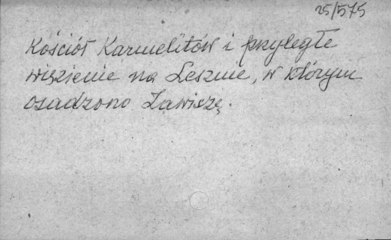 25/575
Kościół Karmelitów i przyległe
więzienie na Lesznie, w którym
osadzono Zawiszę.